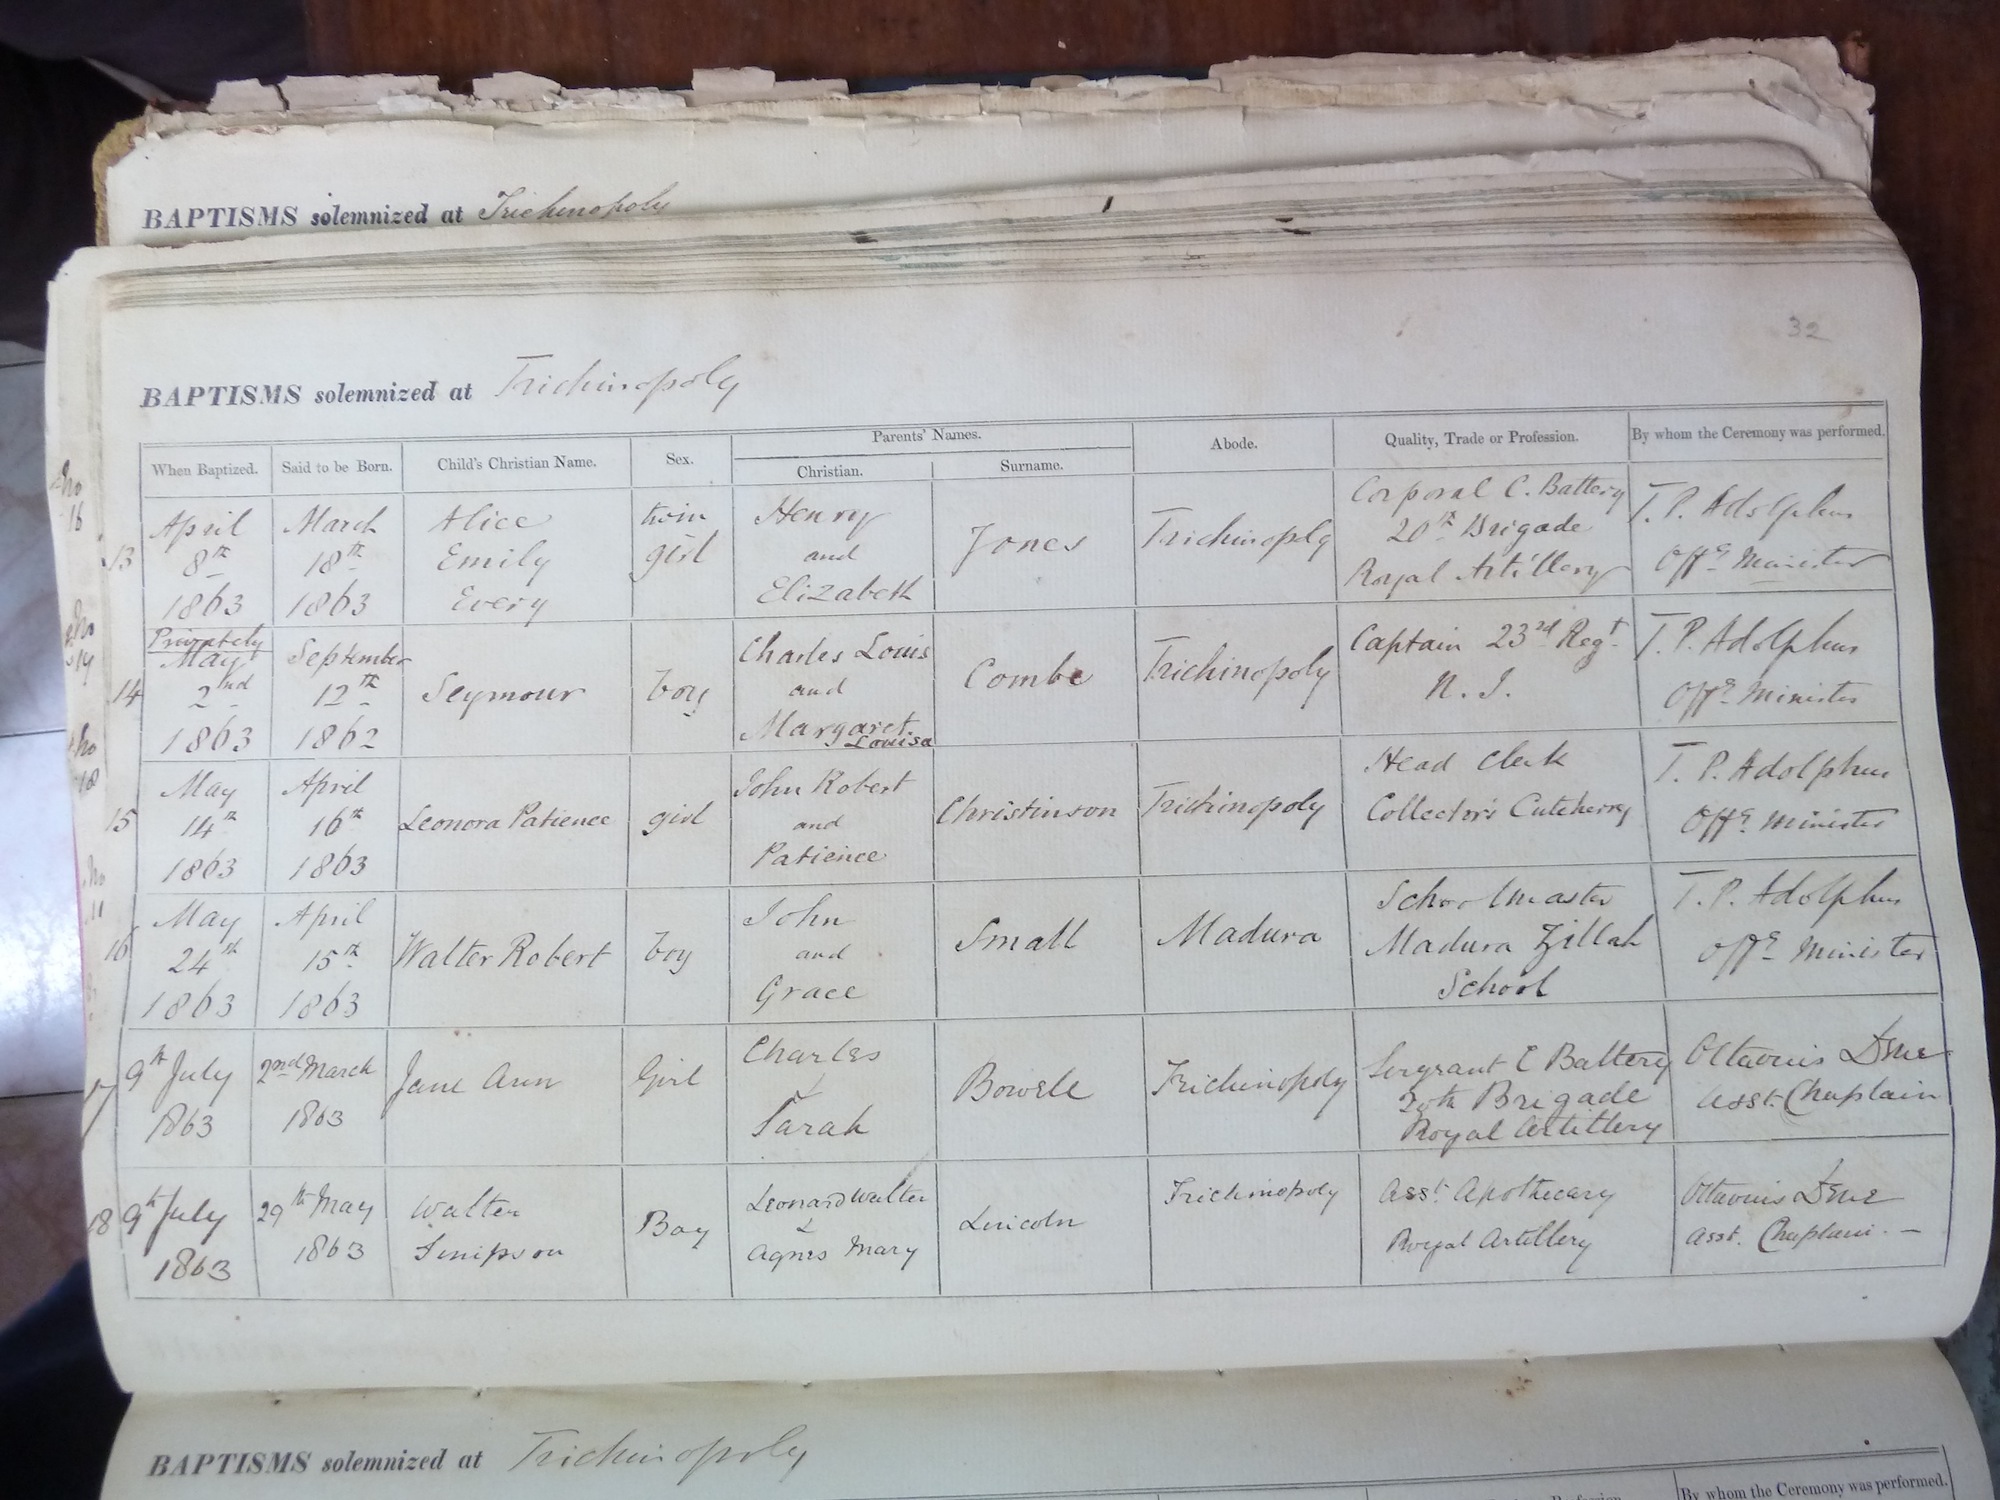 BAPTISMS solemnized at Trichinopoly
32
BAPTISMS solemnized at Trichinopoly
When Baptized. Said to be Born. Child's Christian Name. Sex. Parents' Names. Christian. Surname. Abode. Quality, Trade or Profession. By whom the Ceremony was performed.
No
16
13
April
8th
1863
March
18th
1863
Alice
Emily
Every
twin
girl
Henry
and
Elizabeth
Jones
Trichinopoly
Corporal C. Battery
20th Brigade
Royal Artillery
T. P. Adolphus
Offg Minister
No
14
Privately
May
2nd
1863
September
12th
1862
Seymour
boy
Charles Louis
and
Margaret
Louisa
Combe
Trichinopoly
Captain 23rd Regt.
N. I.
T. P. Adolphus
Offg Minister
No
18
15
May
14th
1863
April
16th
1863
Leonora Patience
girl
John Robert
and
Patience
Christinson
Trichinopoly
Head Clerk
Collector's Cutcherry
T. P. Adolphus
Offg Minister
No
16
May
24th
1863
April
15th
1863
Walter Robert
boy
John
and
Grace
Small
Madura
Schoolmaster
Madura Zillah
School
T. P. Adolphus
Offg Minister
17
9th July
1863
2nd March
1863
Jane Ann
Girl
Charles
&
Sarah
Bowele
Trichinopoly
Sergeant C Battery
20th Brigade
Royal Artillery
Asst. Chaplain
18
9th July
1863
29th May
1863
Walter
Simpson
Boy
Leonard Walter
&
Agnes Mary
Lincoln
Trichinopoly
Asst. Apothecary
Royal Artillery
Asst. Chaplain. —
BAPTISMS solemnized at Trichinopoly
By whom the Ceremony was performed.